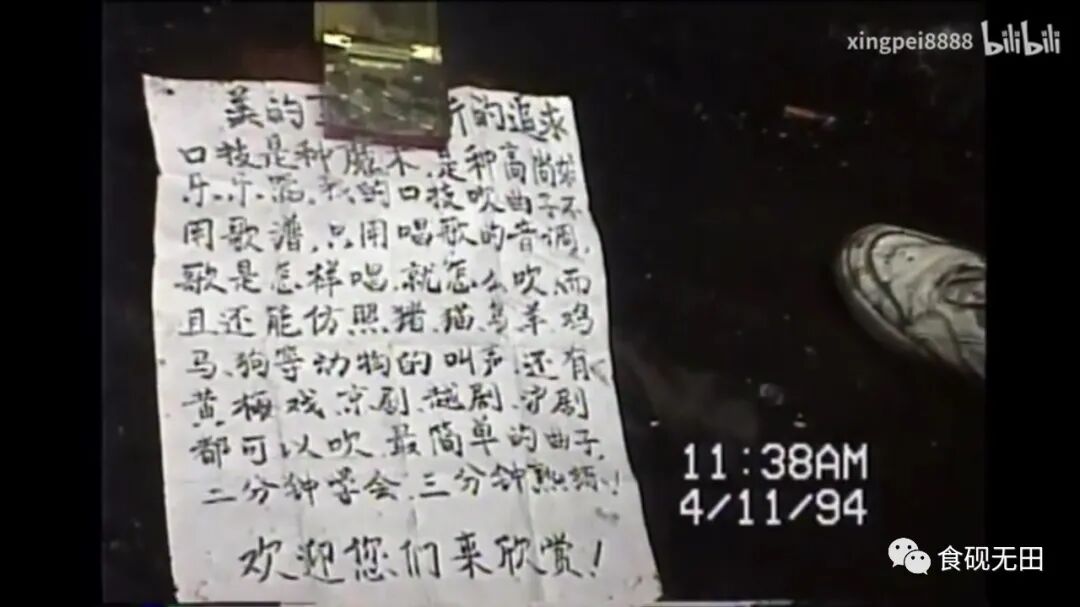 xingpei8888 bilibili
美的 的追求
口技是种魔术,是种高尚
乐,乐器,我的口技吹曲子不
用歌谱,只用唱歌的音调,
歌是怎样唱,就怎么吹,而
且还能仿照猪、猫、鸟、羊、鸡
马、狗等动物的叫声,还有
黄梅戏、京剧、越剧、沪剧
都可以吹,最简单的曲子,
二分钟学会,三分钟熟练!
欢迎您们来欣赏!
11:38AM
4/11/94
食砚无田